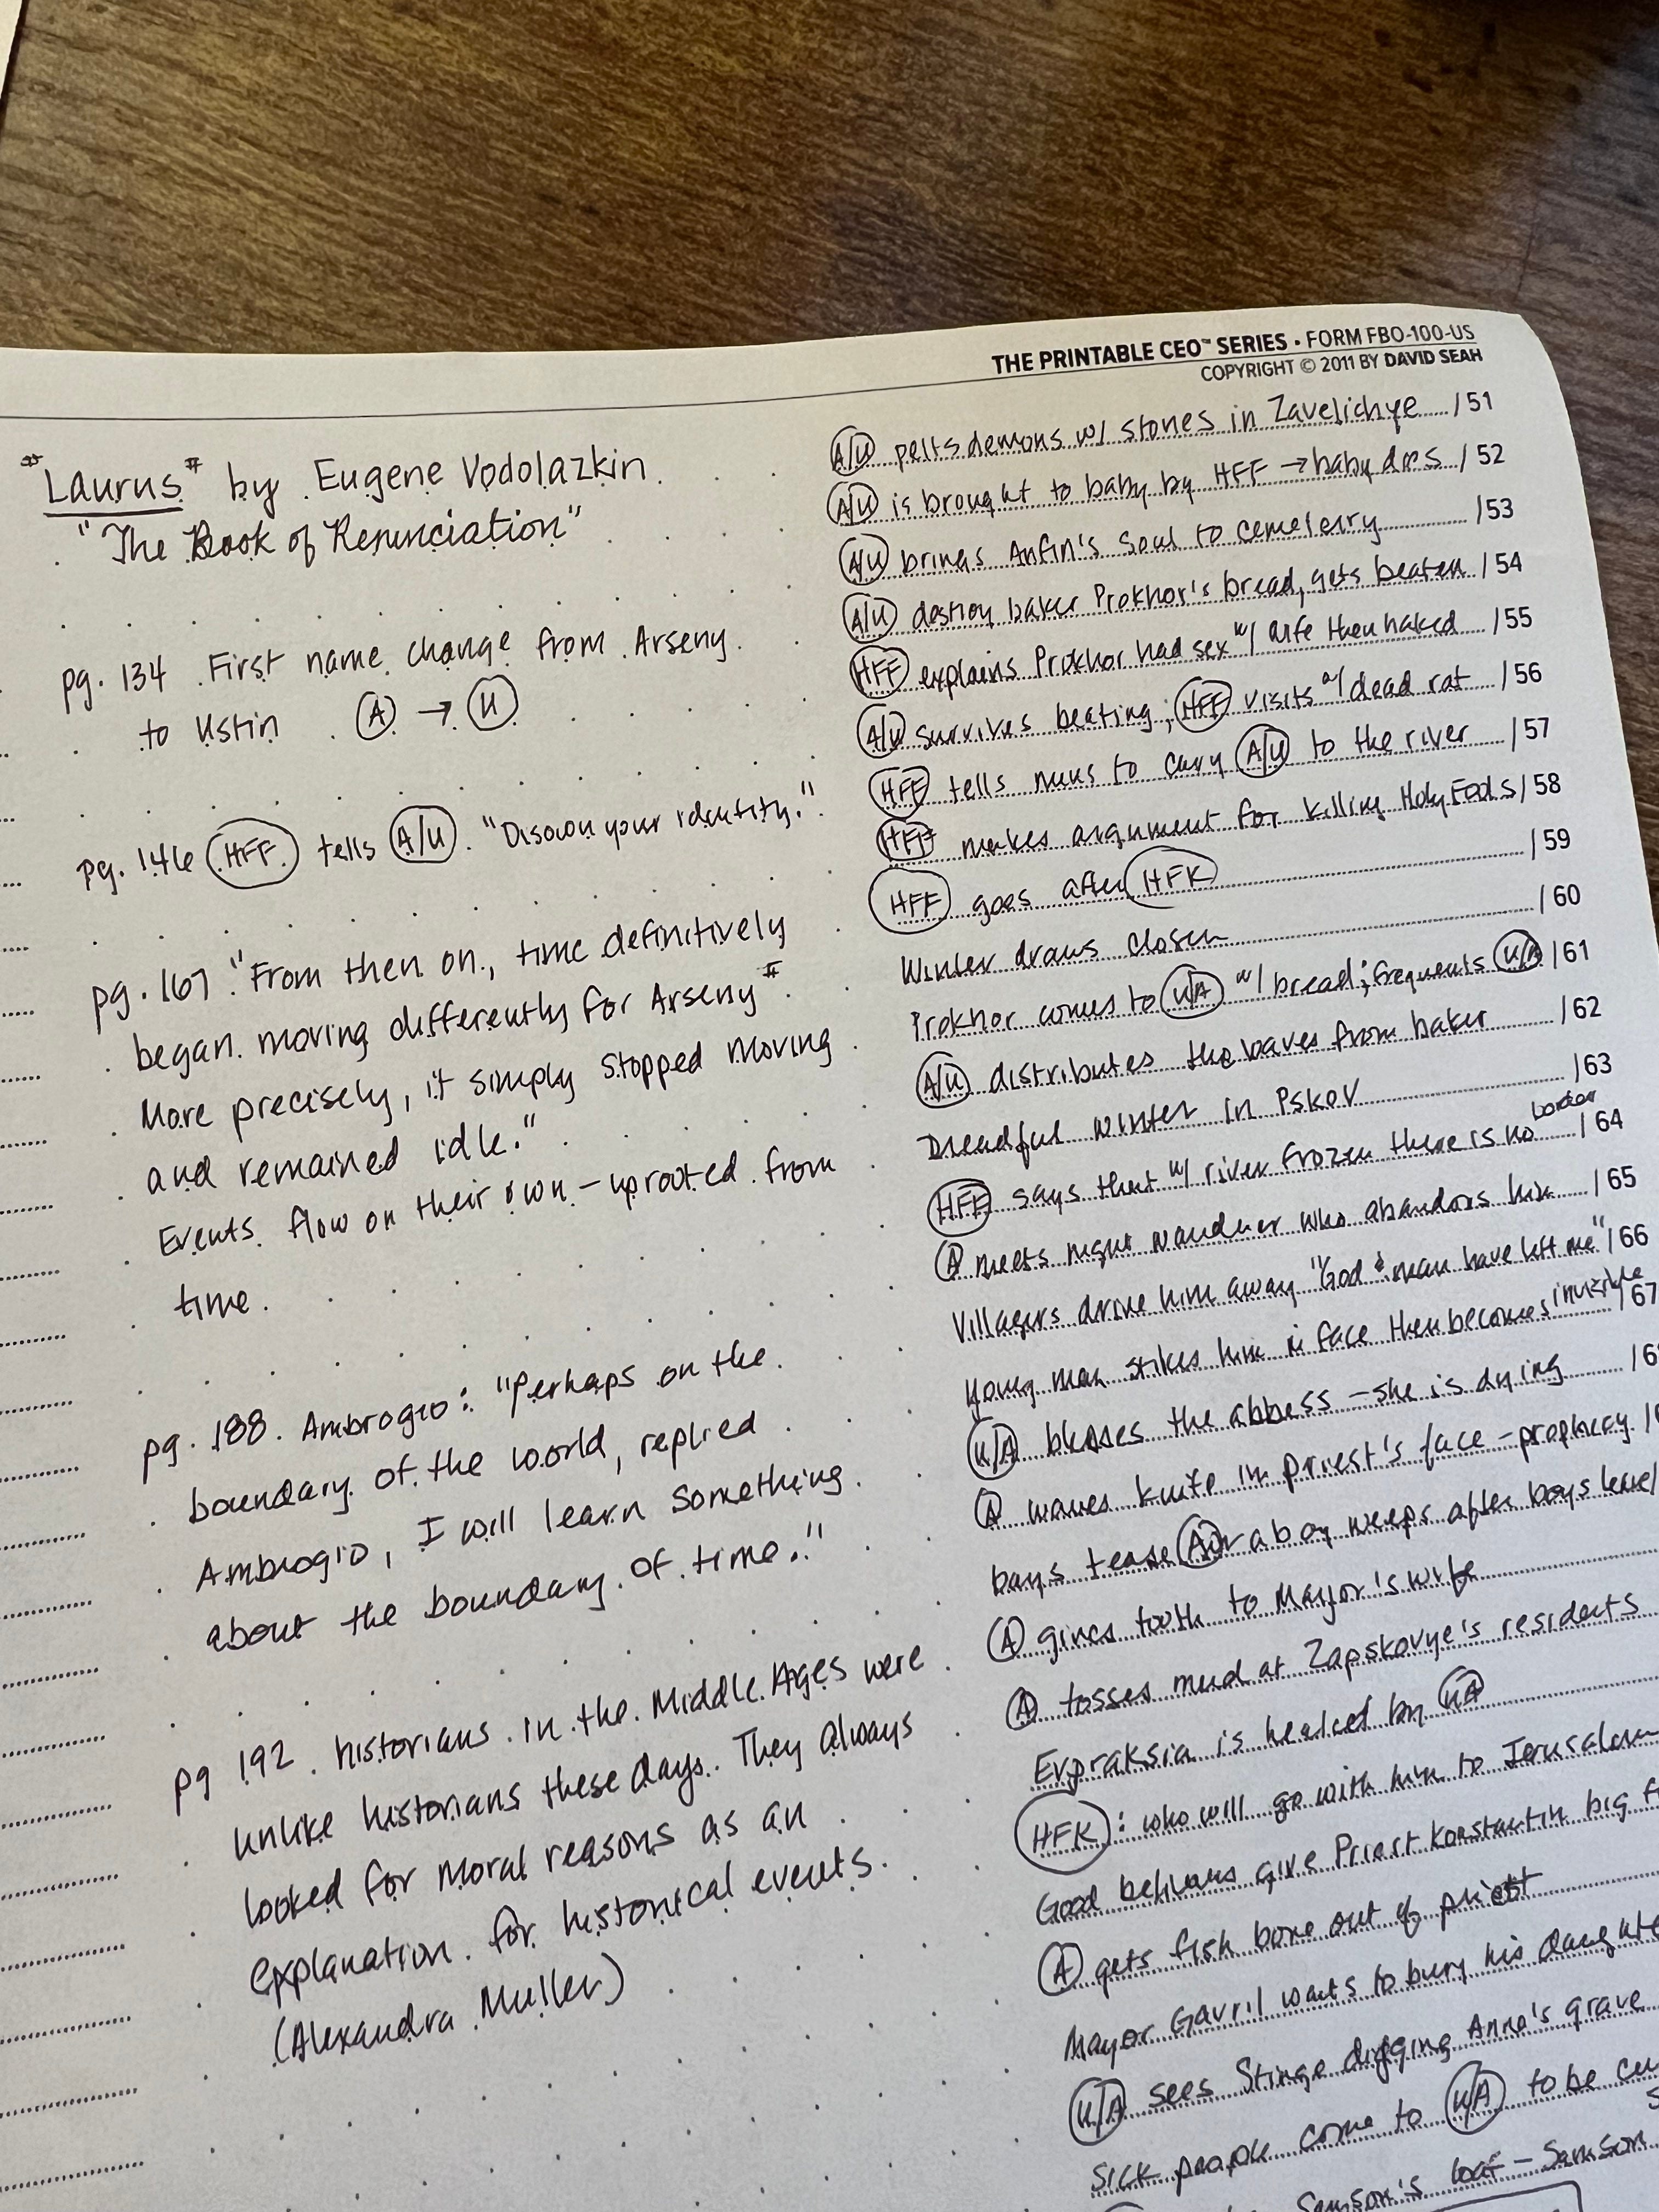 THE PRINTABLE CEO™ SERIES • FORM FBO-100-US
COPYRIGHT © 2011 BY DAVID SEAH
"Laurus" by Eugene Vodolazkin
"The Book of Renunciation"
pg. 134 First name change from Arseny
to Ustin A → U
pg. 146 HFF tells A/U "Disown your identity."
pg. 167 "From then on, time definitively
began moving differently for Arseny".
More precisely, it simply stopped moving
and remained idle."
Events flow on their own – uprooted from
time.
pg. 188. Ambrogio: "Perhaps on the
boundary of the world, replied
Ambrogio, I will learn something
about the boundary of time."
pg 192. historians in the Middle Ages were
unlike historians these days. They always
looked for moral reasons as an
explanation for historical events.
(Alexandra Muller)
A/U pelts demons w/ stones in Zavelichye /51
A/U is brought to baby by HFF → baby dies /52
A/U brings Anfim's soul to cemetery /53
A/U destroy baker Prokhor's bread, gets beaten /54
HFF explains Prokhor had sex w/ wife then baked /55
A/U survives beating; HFF visits w/ dead rat /56
HFF tells nuns to carry A/U to the river /57
HFF makes argument for killing Holy Fools /58
HFF goes after HFK /59
Winter draws closer /60
Prokhor comes to U/A w/ bread; frequents U/A /61
A/U distributes the loaves from baker /62
Dreadful winter in Pskov /63
HFF says that w/ river frozen there is no border /64
A meets night wanderer who abandons him /65
Villagers drive him away "God & man have left me" /66
Young man strikes him in face then becomes invisible /67
U/A blesses the abbess – she is dying /6
A waves knife in priest's face – prophecy /
boys tease A/U a boy weeps after boys leave
A gives tooth to Mayor's wife
A tosses mud at Zapskovye's residents
Evpraksia is healed by U/A
HFK: who will go with him to Jerusalem
Good believers give Priest Konstantin big
A gets fish bone out of priest
Mayor Gavril wants to bury his daughte
U/A sees Stinge digging Anna's grave
Sick people come to U/A to be cu
Samson's loaf – Samson